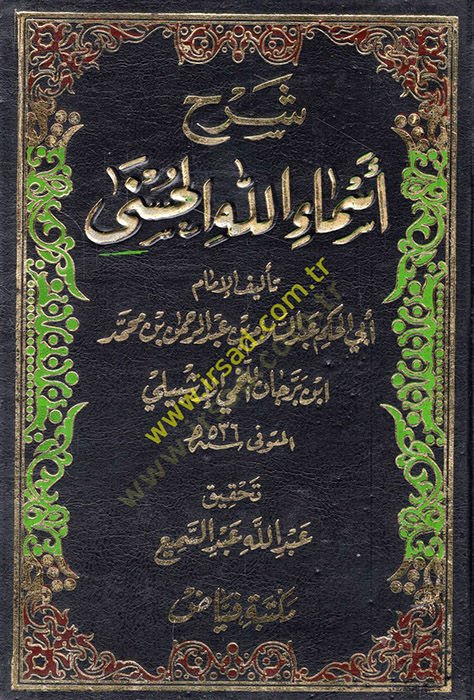 شرح
أسماء الله الحسنى
تأليف الإمام
أبي الحكم عبد السلام بن عبد الرحمن بن محمد
ابن برجان اللخمي الإشبيلي
المتوفى ٥٣٦ هـ
تحقيق
عبد الله عبد السميع
مكتبة فياض
www.irsad.com.tr